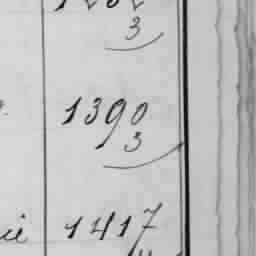 3
1390
3
1417